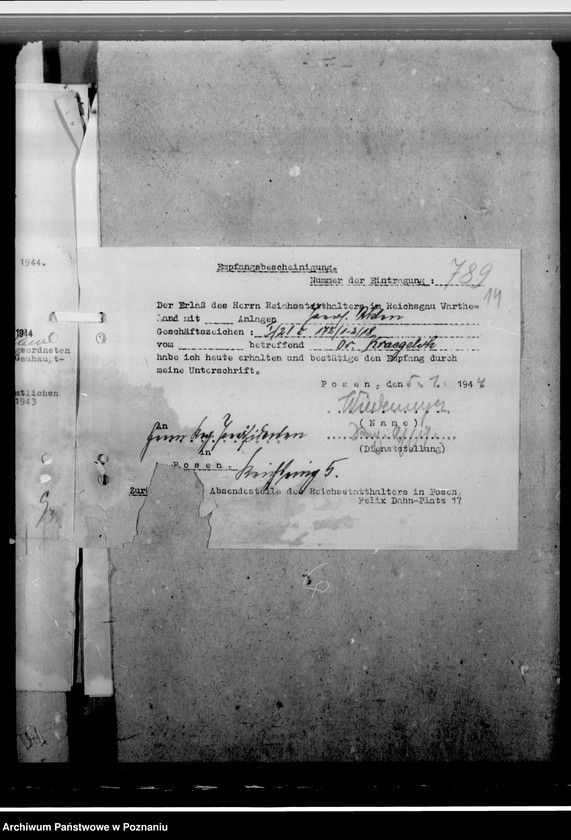 1944.
1944
geordneten
Gauhaupt-
mtlichen
1943
Empfangsbescheinigung.
Nummer der Eintragung : 789
14
Der Erlaß des Herrn Reichsstatthalters im Reichsgau Warthe-
land mit Anlagen
Geschäftszeichen :
vom betreffend Dr. Kraegeloh
habe ich heute erhalten und bestätige den Empfang durch
meine Unterschrift.
Posen, den 5. 1. 1944
Wiedemeyer
(Name)
(Dienststellung)
An
Herrn Reg. Präsidenten
in
Posen.
Absendestelle des Reichsstatthalters in Posen,
Felix Dahn-Platz 17
Archiwum Państwowe w Poznaniu